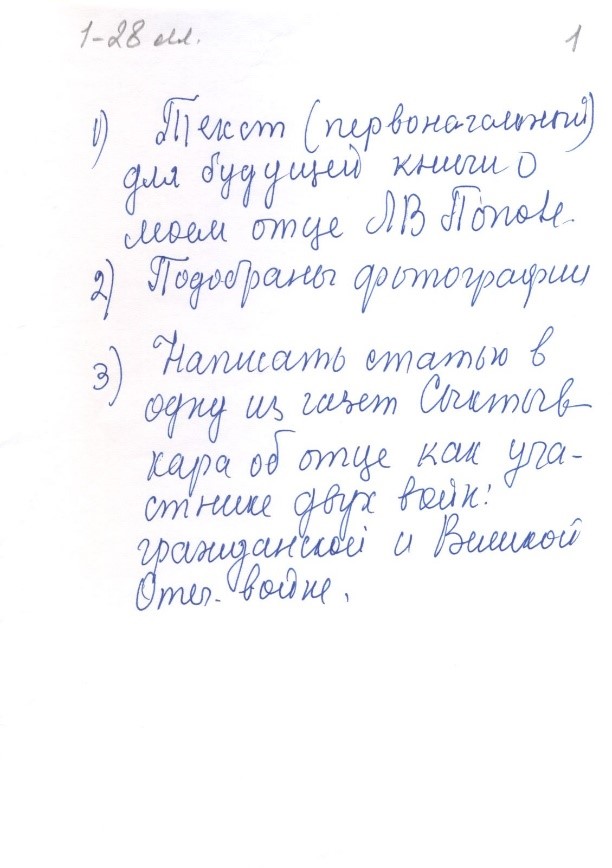 1-28 лл.
1
1) Текст (первоначальный)
для будущей книги о
моем отце ЛВ Попове.
2) Подобраны фотографии
3) Написать статью в
одну из газет Сыктыв-
кара об отце как уча-
стнике двух войн:
гражданской и Великой
Отеч. войне.